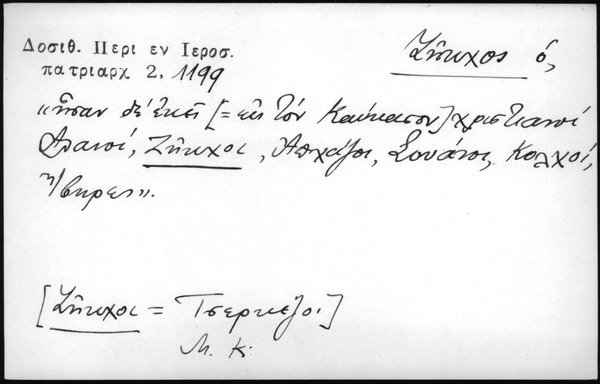 Δοσιθ. Περι εν Ιεροσ.
πατριαρχ 2. 1199
Ζῆκχος ὁ,
«ἦσαν δέ ἐκεῖ [= εἰς τόν Καύκασον] χριστιανοί
Ἀλανοί, Ζῆκχοι, Ἀπχάζοι, Σουάνοι, Κολχοί,
Ἴβηρες».
[Ζῆκχοι = Τσερκέζοι]
Μ. Κ.